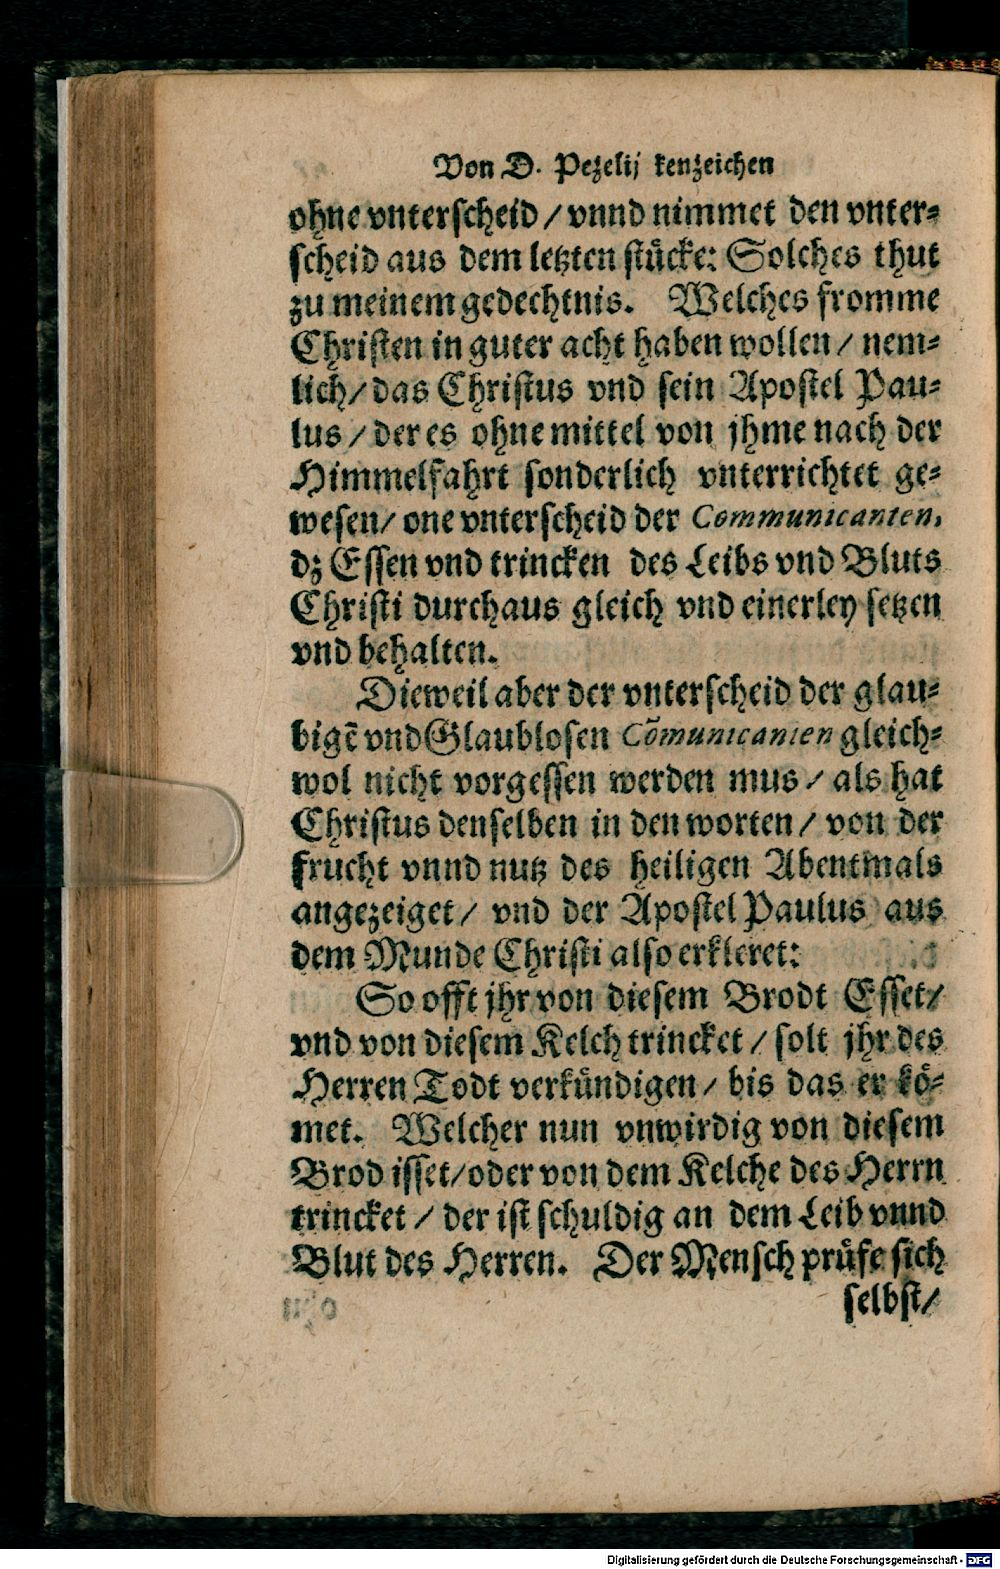 Von D. Pezelij kenzeichen
ohne vnterscheid / vnnd nimmet den vnter-
scheid aus dem letzten stücke: Solches thut
zu meinem gedechtnis. Welches fromme
Christen in guter acht haben wollen / nem-
lich / das Christus vnd sein Apostel Pau-
lus / der es ohne mittel von jhme nach der
Himmelfahrt sonderlich vnterrichtet ge-
wesen / one vnterscheid der Communicanten,
dz Essen vnd trincken des Leibs vnd Bluts
Christi durchaus gleich vnd einerley setzen
vnd behalten.
Dieweil aber der vnterscheid der glau-
bigẽ vnd Glaublosen Cõmunicanten gleich-
wol nicht vorgessen werden mus / als hat
Christus denselben in den worten / von der
frucht vnnd nutz des heiligen Abentmals
angezeiget / vnd der Apostel Paulus aus
dem Munde Christi also erkleret:
So offt jhr von diesem Brodt Esset /
vnd von diesem Kelch trincket / solt jhr des
Herren Todt verkündigen / bis das er kö-
met. Welcher nun vnwirdig von diesem
Brod isset / oder von dem Kelche des Herrn
trincket / der ist schuldig an dem Leib vnnd
Blut des Herren. Der Mensch prüfe sich
selbst /
Digitalisierung gefördert durch die Deutsche Forschungsgemeinschaft - DFG